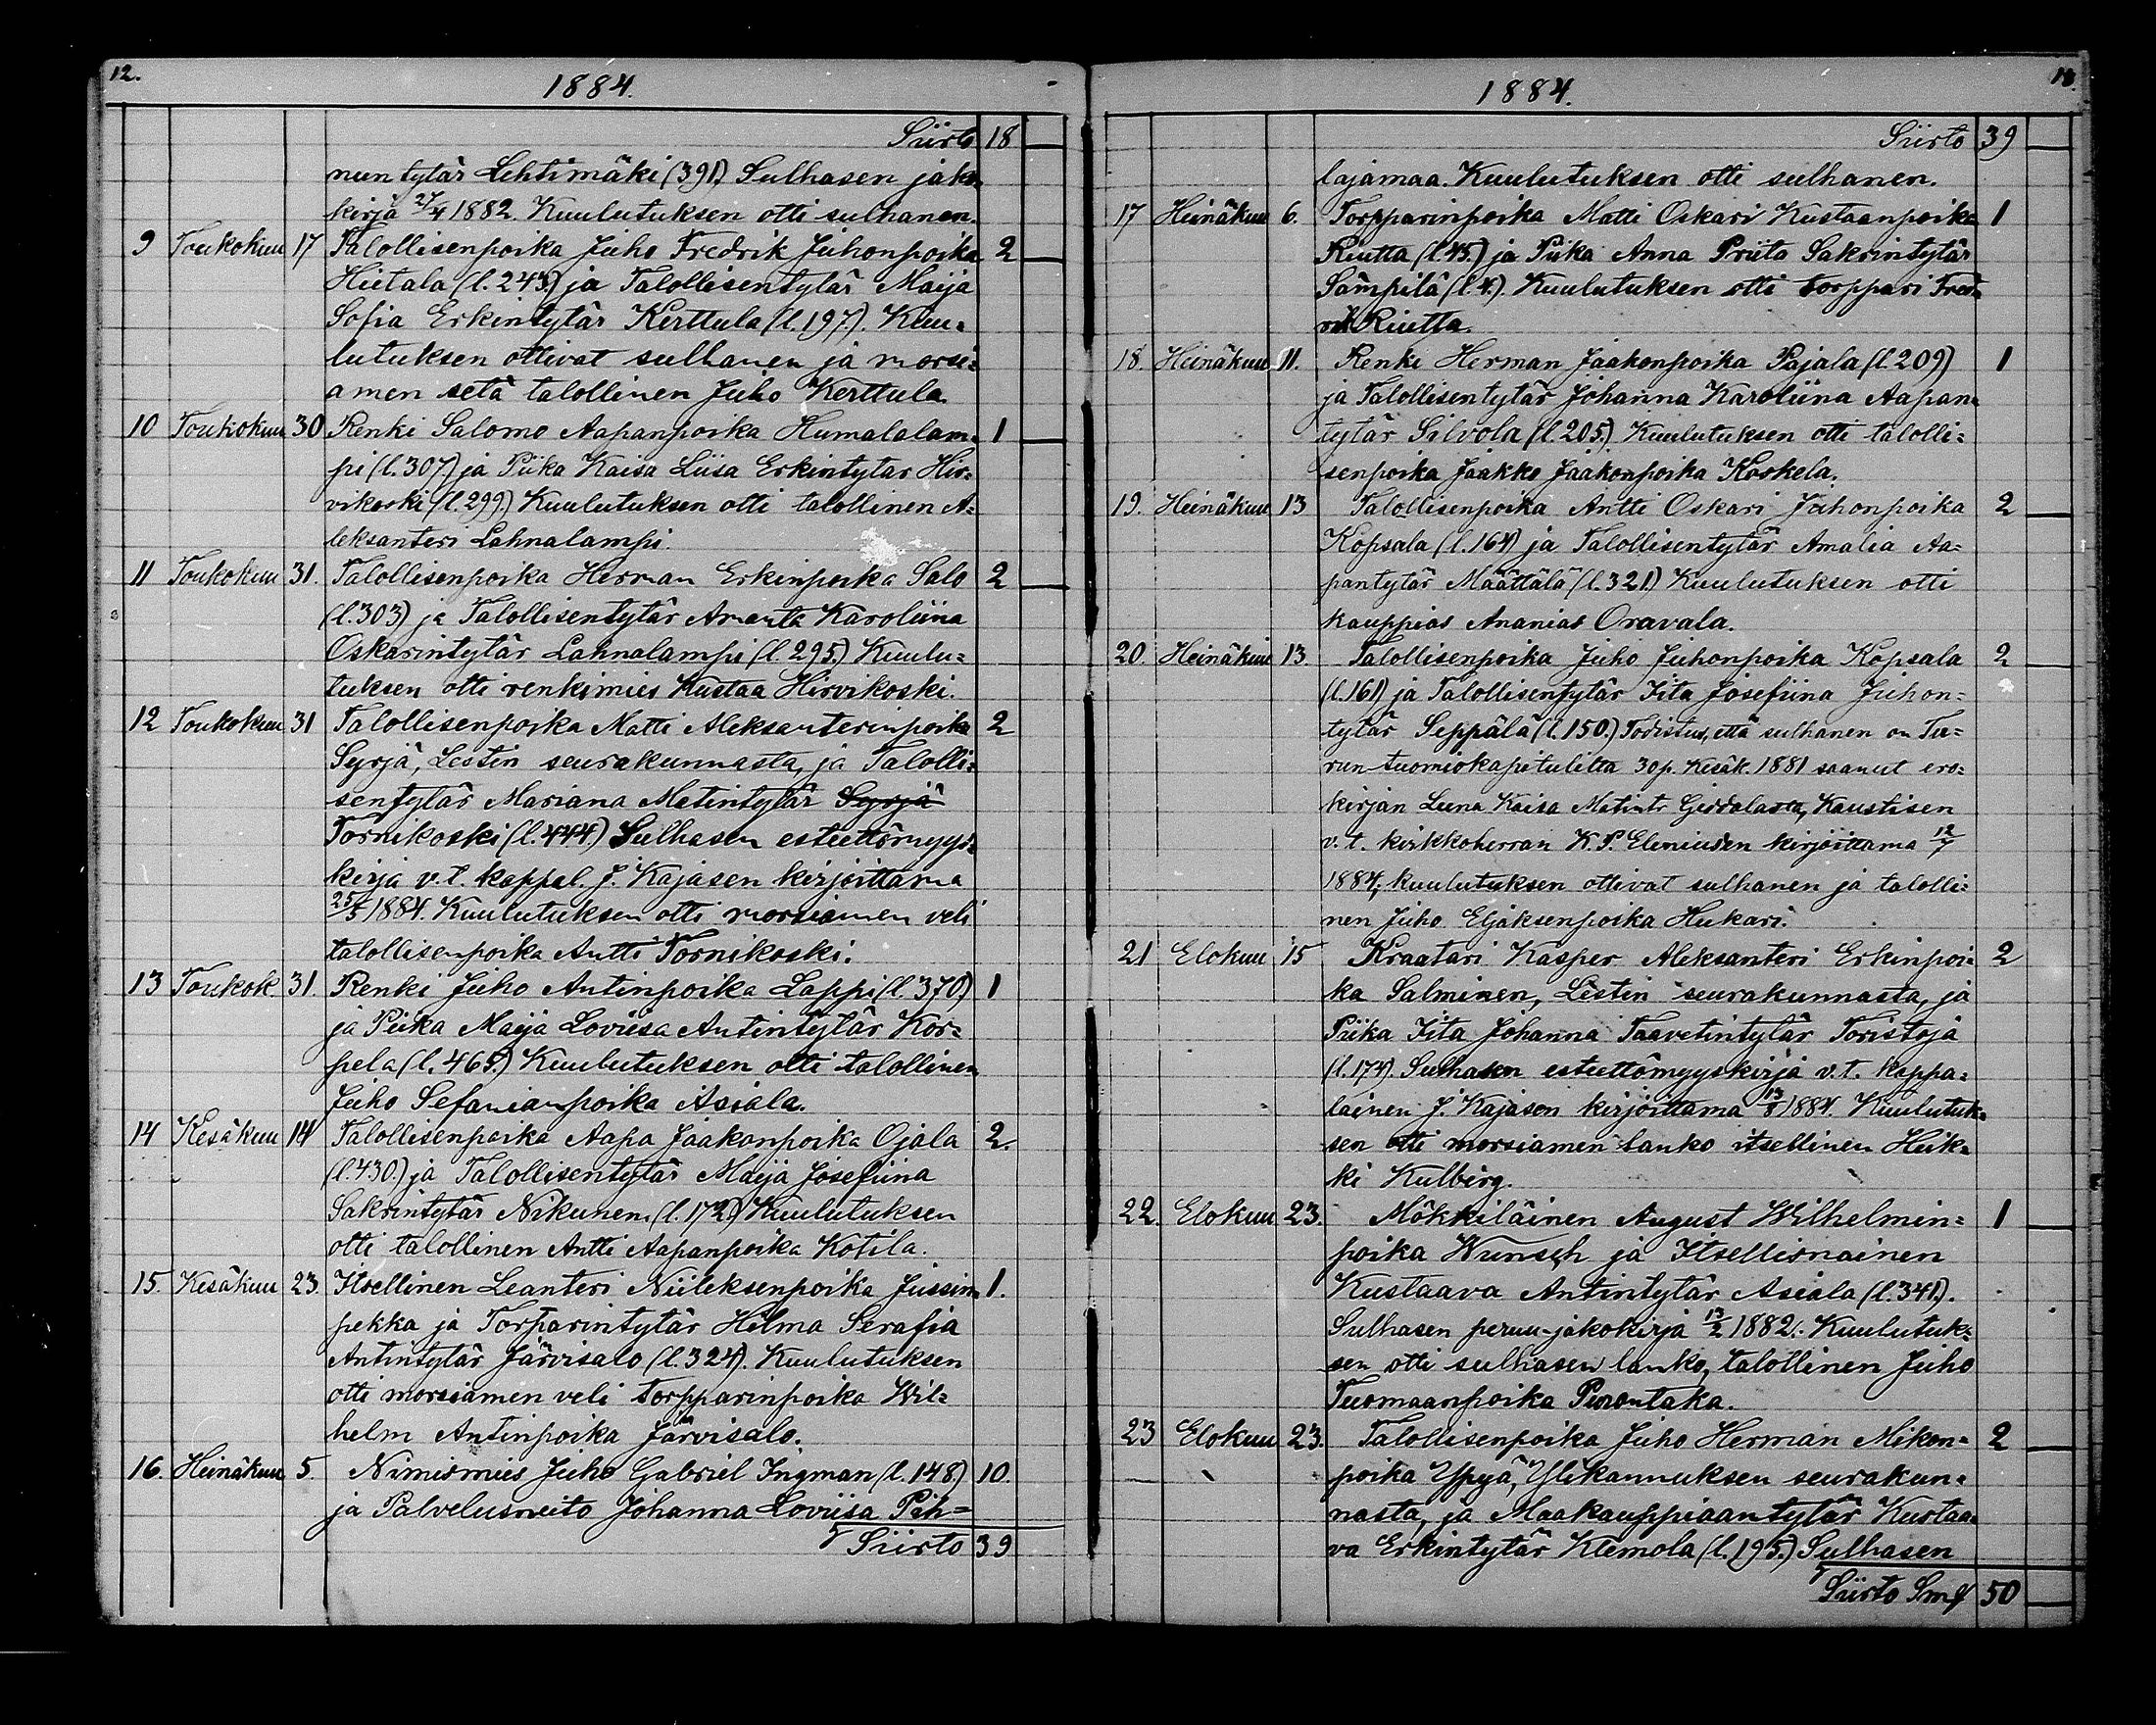 12.
1884.
Siirto 18
nuntytär Lehtimäki (391.) Sulhasen jako-
kirja 27/4 1882. Kuulutuksen otti sulhanen.
9 Toukokuu 17 Talollisenpoika Juho Fredrik Juhonpoika 2
Hietala (l. 243.) ja Talollisentytär Maija
Sofia Erkintytär Kerttula (l. 197). Kuu-
lutuksen ottivat sulhanen ja morsi-
amen setä talollinen Juho Kerttula.
10 Toukokuu 30 Renki Salomo Aapanpoika Humalalam- 1
pi (l. 307) ja Piika Kaisa Liisa Erkintytar Hir-
vikoski (l. 299.) Kuulutuksen otti talollinen A-
leksanteri Lahnalampi.
11 Toukokuu 31. Talollisenpoika Herman Erkinpoika Salo 2
(l. 303) ja Talollisentytär Amanta Karoliina
Oskarintytär Lahnalampi (l. 295.) Kuulu-
tuksen otti renkimies Kustaa Hirvikoski.
12 Toukokuu 31 Talollisenpoika Matti Aleksanterinpoika 2
Syrjä, Lestin seurakunnasta, ja Talolli-
sentytär Mariana Matintytär Syrjä
Tornikoski (l. 444.) Sulhasen esteettömyys-
kirja v.t. kappal. J. Kajasen kirjoittama
25/5 1884. Kuulutuksen otti morsiamen veli
talollisenpoika Antti Tornikoski.
13 Toukok. 31. Renki Juho Antinpoika Lappi (l. 370) 1
ja Piika Maija Loviisa Antintytär Kor-
pela (l. 465.) Kuulutuksen otti talollinen
Juho Sefanianpoika Asiala.
14 Kesäkuu 14 Talollisenpoika Aapa Jaakonpoika Ojala 2.
(l. 430.) ja Talollisentytär Maija Josefiina
Sakrintytär Nikunen (l. 172) Kuulutuksen
otti talollinen Antti Aapanpoika Kotila.
15. Kesäkuu 23. Itsellinen Leanteri Niileksenpoika Jussin- 1.
pekka ja Torparintytär Hilma Serafia
Antintytär Järvisalo (l. 324). Kuulutuksen
otti morsiamen veli torpparinpoika Wil-
helm Antinpoika Järvisalo.
16. Heinäkuu 5. Nimismies Juho Gabriel Ingman (l. 148) 10.
ja Palvelusneito Johanna Loviisa Pih-
Siirto 39
1884.
Siirto 39
lajamaa. Kuulutuksen otti sulhanen.
17 Heinäkuu 6. Torpparinpoika Matti Oskari Kustaanpoika 1
Riutta (l. 45.) ja Piika Anna Priita Sakrintytär
Sämpilä (l. 4.). Kuulutuksen otti torppari Fred-
rik Riutta.
18. Heinäkuu 11. Renki Herman Jaakonpoika Pajala (l. 209) 1
ja Talollisentytär Johanna Karoliina Aapan-
tytär Silvola (l. 205.) Kuulutuksen otti talolli-
senpoika Jaakko Jaakonpoika Koskela.
19. Heinäkuu 13 Talollisenpoika Antti Oskari Juhonpoika 2
Kopsala (l. 164) ja Talollisentytär Amalia Aa-
pantytär Määttälä (l. 321.) Kuulutuksen otti
kauppias Ananias Oravala.
20. Heinäkuu 13. Talollisenpoika Juho Juhonpoika Kopsala 2
(l. 161) ja Talollisentytär Iita Josefiina Juhon-
tytär Seppälä (l. 150.) Todistus, että sulhanen on Tu-
run tuomiokapitulilta 30 p. Kesäk. 1881 saanut ero-
kirjan Leena Kaisa Matintr , Kaustisen
v. t. kirkkoherran K. P. kirjoittama 12/7
1884; kuulutuksen ottivat sulhanen ja talolli-
nen Juho Eljaksenpoika Hukari.
21 Elokuu 15 Kraatari Kasper Aleksanteri Erkinpoi- 2
ka Salminen, Lestin seurakunnasta, ja
Piika Iita Johanna Taavetintytär Toristoja
(l. 174). Sulhasen esteettömyyskirja v.t. kappa-
lainen J. Kajasen kirjoittama 13/8 1884. Kuulutuk-
sen otti morsiamen lanko itsellinen Heik-
ki Kulberg.
22. Elokuu 23. Mökkiläinen August Wilhelmin- 1
poika Wunsch ja Itsellisnainen
Kustaava Antintytär Asiala (l. 341.).
Sulhasen perun-jakokirja 13/2 1882. Kuulutuk-
sen otti sulhasen lanko, talollinen Juho
Tuomaanpoika Purontaka.
23 Elokuu 23. Talollisenpoika Juho Herman Mikon- 2
poika Ypyä, Ylikannuksen seurakun-
nasta, ja Maakauppiaantytär Kustaa-
va Erkintytär Klemola (l. 195.) Sulhasen
Siirto Smf 50